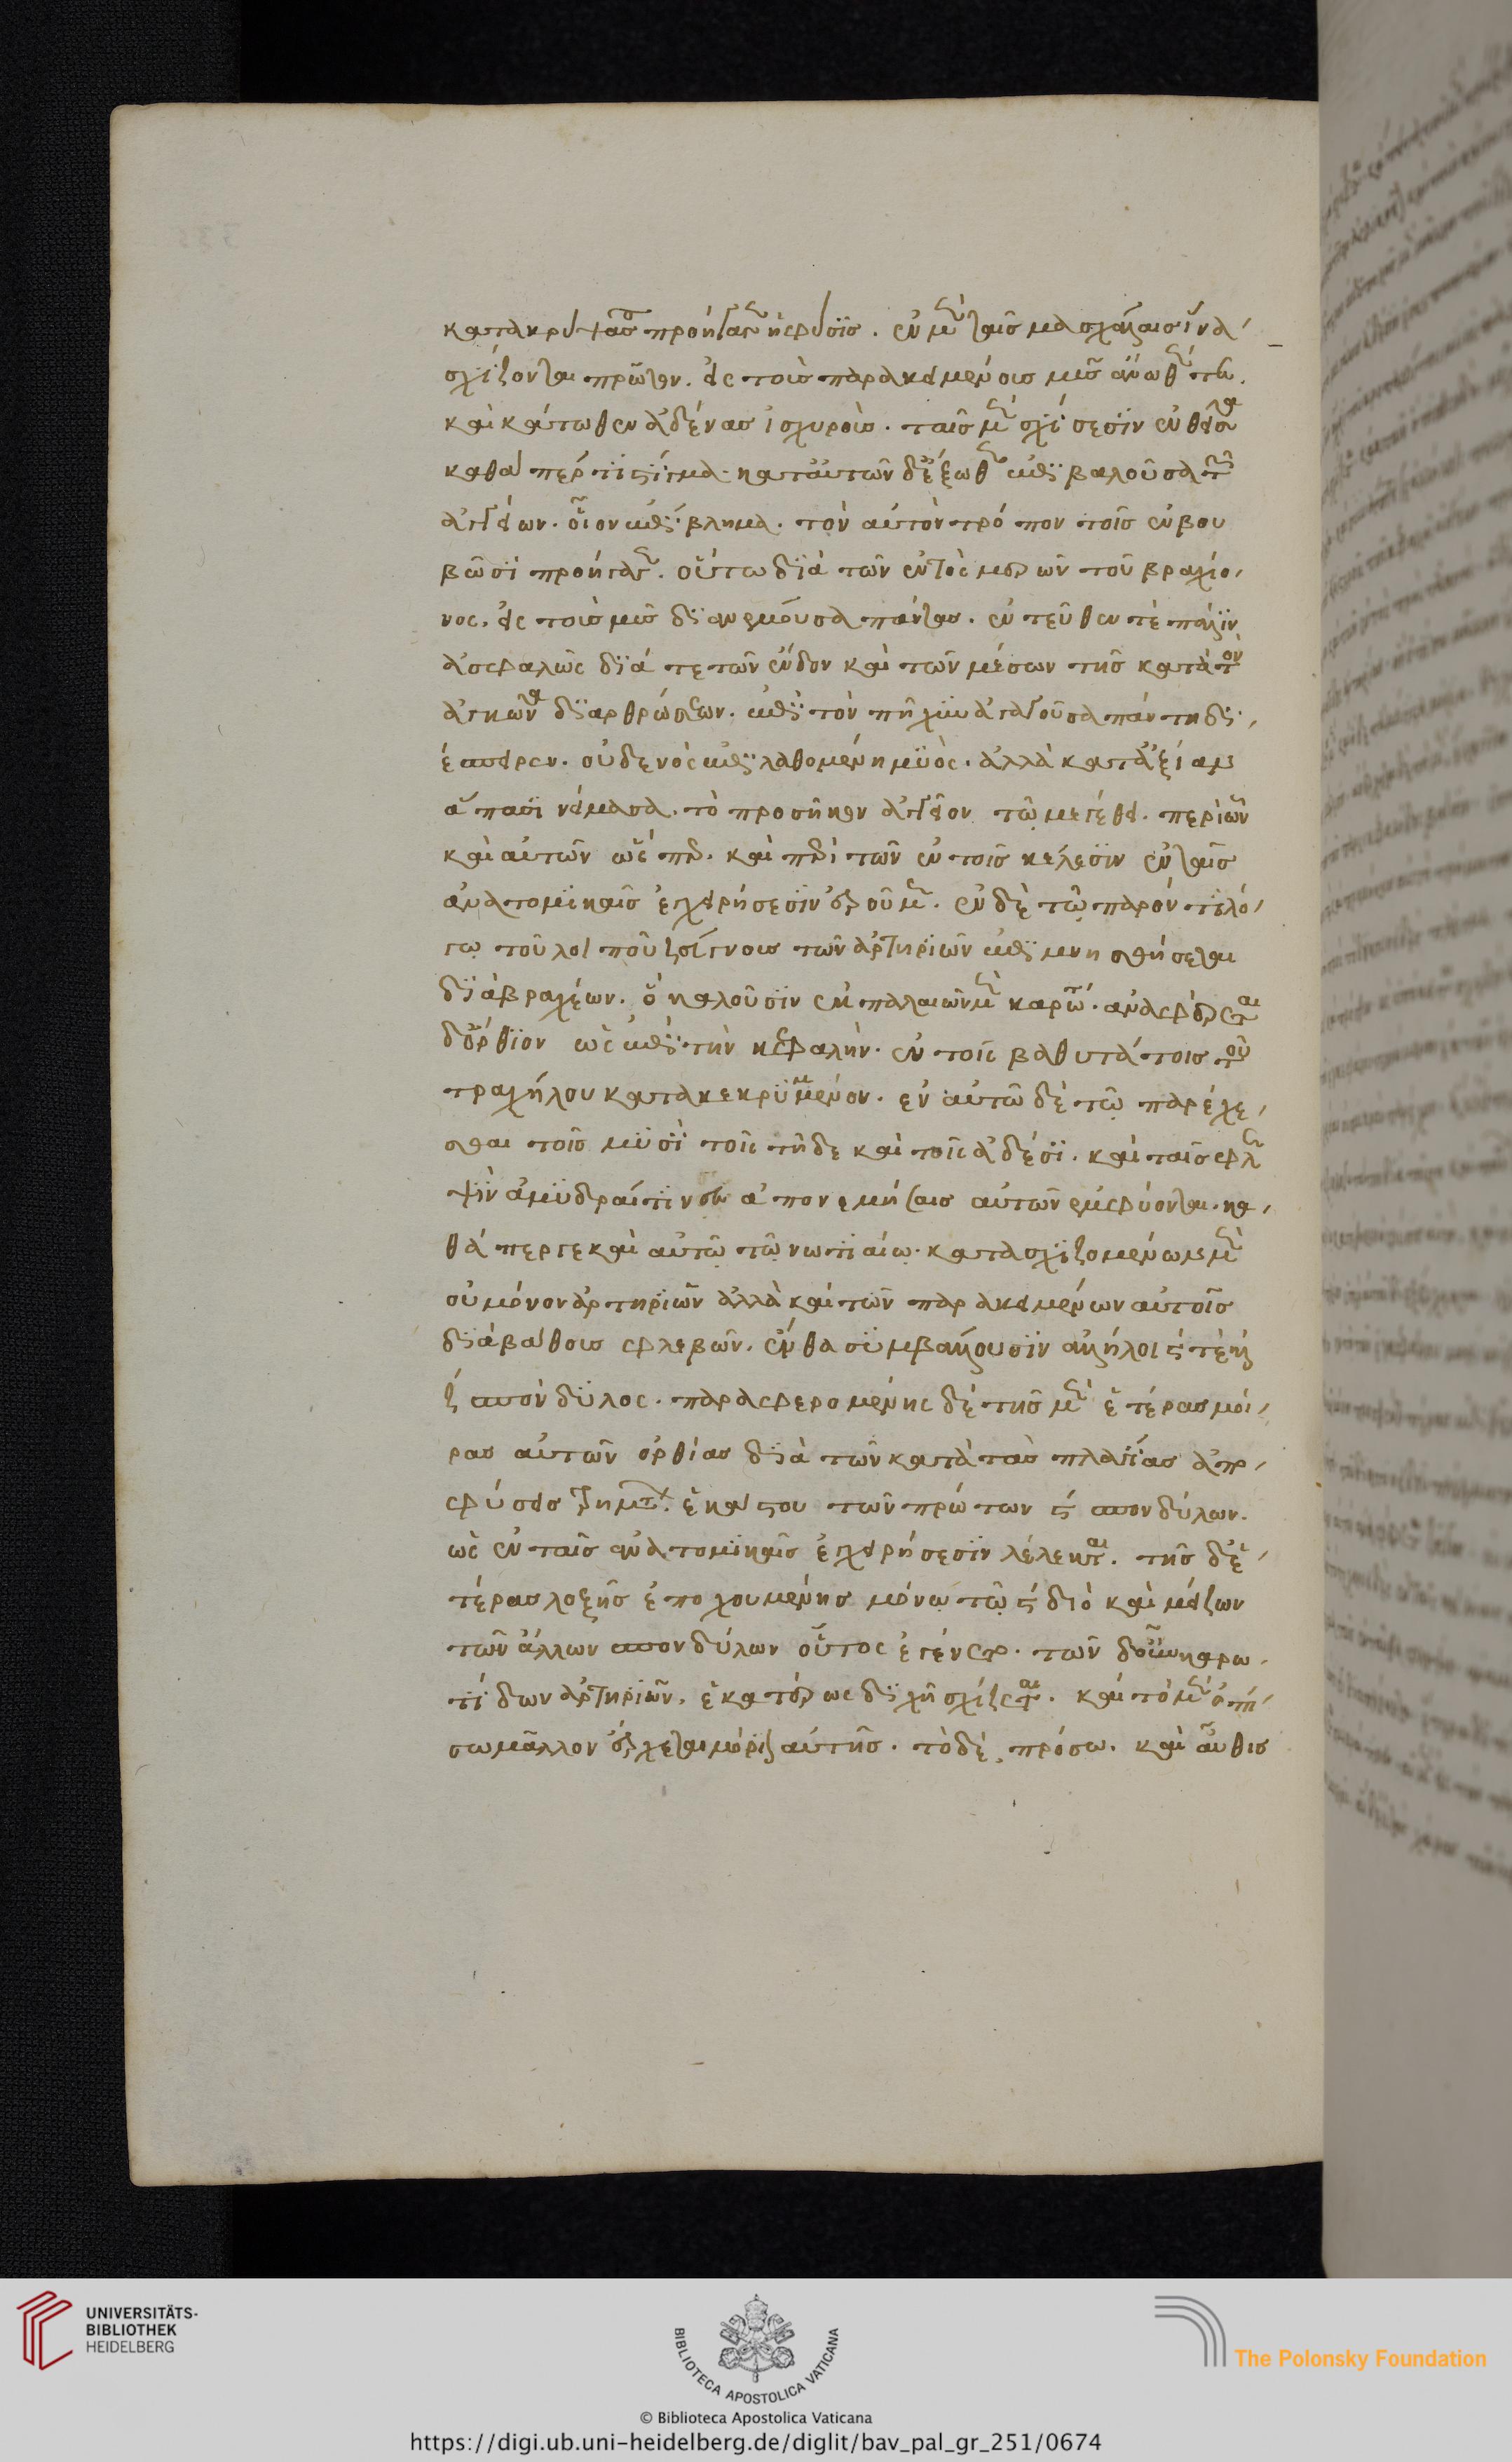 κατακρύψασ προήγαγεν ἡ φύσϊσ. ἐν μὲν ταῖσ μασχάλαισ ἵνα
σχίζονται πρῶτον. εἰς τοὺσ παρακειμένουσ μῦσ ἄνωθέν τε.
καὶ κάτωθεν ἀδένασ ἰσχυροὺσ. ταῖσ μὲν σχίσεσϊν ἐνθεῖσα
καθάπερ τϊ στήριγμα κατ' αὐτῶν δ' ἔξωθεν ἐπϊβαλοῦσα τῶν
ἀγγείων. οἷον ἐπϊβλημα. τὸν αὐτὸν τρόπον τοῖσ ἐν βου
βῶσϊ προήγαγεν. οὕτω δϊὰ τῶν ἐντὸς μερῶν τοῦ βραχίο
νος. εἰς τοὺσ μῦσ δϊανέμουσα πάντασ. ἐντεῦθέν τε πάλϊν
ἀσφαλῶς δϊά τε τῶν ἔνδον καὶ τῶν μέσων τῆσ κατὰ τὸν
ἀγκῶνα δϊαρθρώσεων. ἐπϊ τὸν πῆχϋν ἀγαγοῦσα πάντη δϊ
έσπειρεν. οὐδενὸς ἐπϊλαθομένη μϋὸς. ἀλλὰ κατ' ἀξίαν
ἅπασϊ νείμασα. τὸ προσῆκον ἀγγεῖον τῷ μεγέθει. περὶ ὧν
καὶ αὐτῶν ὥσπερ. καὶ περὶ τῶν ἐν τοῖσ σκέλεσϊν ἐν ταῖσ
ἀνατομϊκαῖσ ἐγχειρήσεσϊν ἐροῦμεν. ἐν δὲ τῷ παρόντϊ λό
γῳ τοῦ λοιποῦ ζεύγουσ τῶν ἀρτηρϊῶν ἐπϊμνησθήσεται
δϊὰ βραχέων. ὃ καλοῦσϊν ἐκ παλαιῶν μὲν καρω. ἀναφέρεται
δ' ὄρθϊον ὡς ἐπϊ τὴν κεφαλὴν. ἐν τοῖς βαθυτάτοισ τοῦ
τραχήλου κατακεκρϋμμένον. ἐν αὐτῶ δὲ τῷ παρέχε
σθαι τοῖσ μϋσὶ τοῖς τῆδε καὶ τοῖς ἀδέσϊ. καὶ ταῖσ φλε
ψϊν ἀμϋδραί τϊνεσ ἀπονεμήσεισ αὐτῶν ἐμφύονται. κα
θάπερ γε καὶ αὐτῷ τῷ νωτϊαίῳ. κατασχϊζομένων μὲν
οὐ μόνον ἀρτηρϊῶν ἀλλὰ καὶ τῶν παρακειμένων αὐτοῖσ
δϊὰ βάθουσ φλεβῶν. ἔνθα σϋμβάλλουσϊν ἀλλήλοις τε καὶ
ζ σπόνδϋλος. παραφερομένης δὲ τῆσ μὲν ἑτέρασ μοί
ρασ αὐτῶν ὀρθίασ δϊὰ τῶν κατὰ τὰσ πλαγίασ ἀπο
φύσεισ τρημάτων ἑκάστου τῶν πρώτων ϛ σπονδύλων.
ὡς ἐν ταῖσ ἀνατομϊκαῖσ ἐγχειρήσεσϊν λέλεκται. τῆσ δ' ἑ
τέρασ λοξῆσ ἐποχουμένησ μόνῳ τῷ ϛ διὸ καὶ μείζων
τῶν ἄλλων σπονδύλων οὗτος ἐγένετο. τῶν δ' οὖν καρω
τίδων ἀρτηρϊῶν. ἑκατέρως δϊχῆ σχίζεται. καὶ τὸ μὲν ὀπί
σω μᾶλλον ἔρχεται μόριον αὐτῆσ. τὸ δὲ πρόσω. καὶ αὖθισ
UNIVERSITÄTS-
BIBLIOTHEK
HEIDELBERG
BIBLIOTECA APOSTOLICA VATICANA
The Polonsky Foundation
© Biblioteca Apostolica Vaticana
https://digi.ub.uni-heidelberg.de/diglit/bav_pal_gr_251/0674